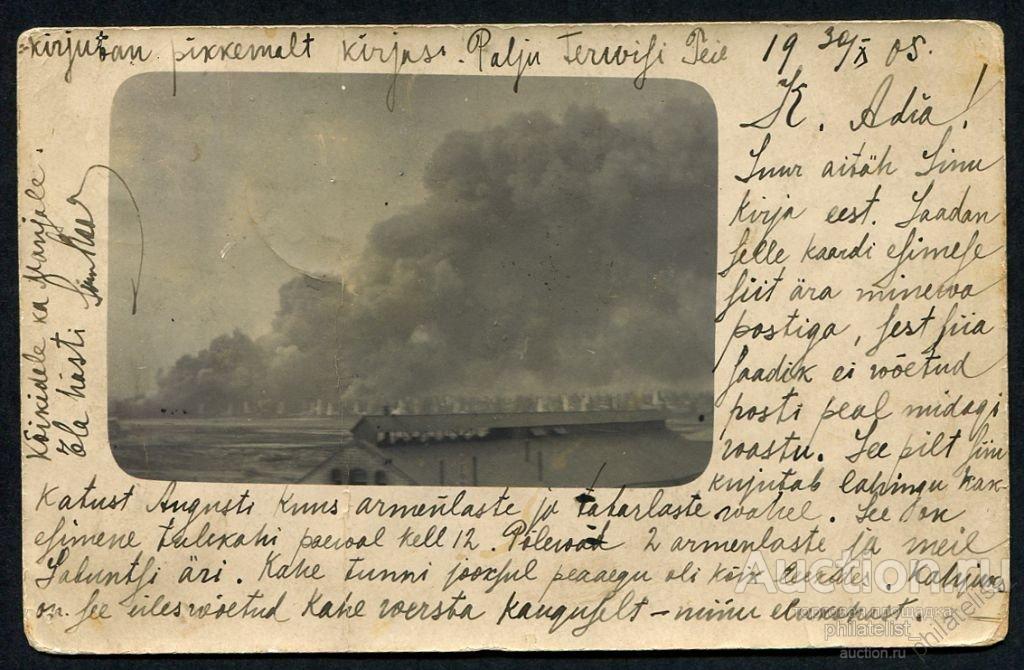 19 30/X 05.
K. Adia!
Suur aitäh Sinu
kirja eest. Saadan
selle kaardi esimese
siit ära minewa
postiga, sest siia
saadik ei wõetud
posti peal midagi
wastu. See pilt siin
kujutab lahingu Kax-
katust Augusti kuus armenlaste ja tatarlaste wahel. See on
esimene tulekahi paewal kell 12. Põlewad 2 armenlaste ja meil
äri. Kahe tunni jooksul peaaegu oli kõik
on see üleswõetud Kahe wersta kauguselt – minu elukohast.
kirjutan pikkemalt kirjas. Palju Terwisi Teie
Kõikidele ka mamjale.
Ela hästi
Auction.ru
торговая площадка
philatelist
auction.ru
philatelist